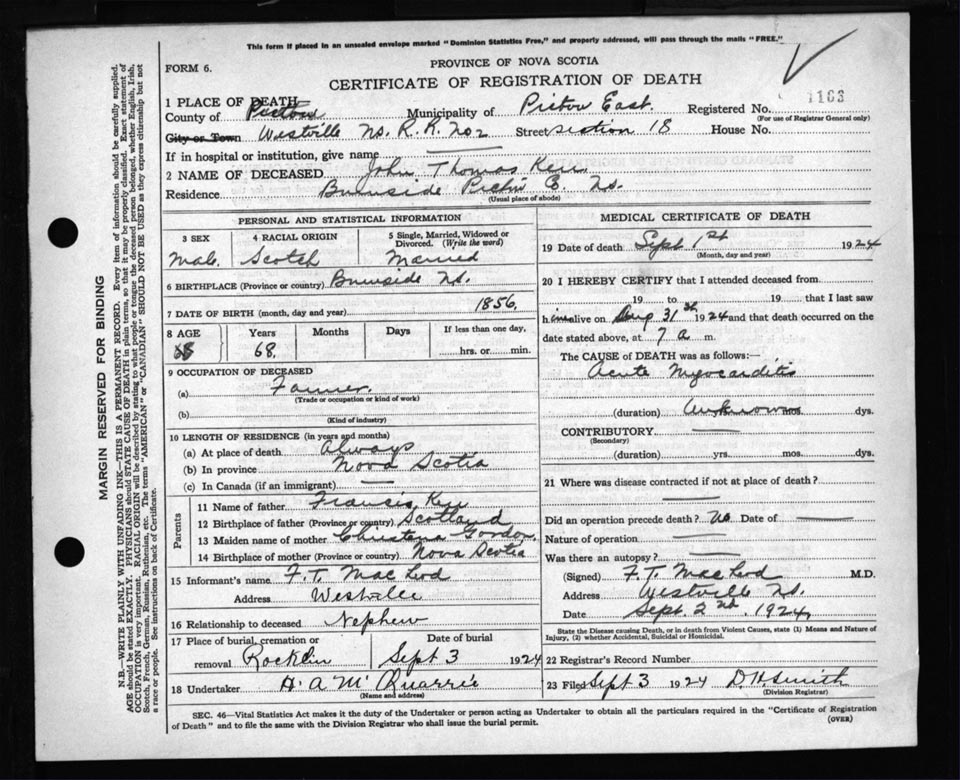 This form if placed in an unsealed envelope marked "Dominion Statistics Free," and properly addressed, will pass through the mails "FREE."
FORM 6.
PROVINCE OF NOVA SCOTIA
CERTIFICATE OF REGISTRATION OF DEATH
1163
1 PLACE OF DEATH
County of Pictou Municipality of Pictou East. Registered No.
(For use of Registrar General only)
City or Town Westville Ns. R.R. No 2 Street section 18 House No.
If in hospital or institution, give name
2 NAME OF DECEASED John Thomas Kerr
Residence Burnside Pictou E. Ns.
(Usual place of abode)
PERSONAL AND STATISTICAL INFORMATION
3 SEX
Male.
4 RACIAL ORIGIN
Scotch
5 Single, Married, Widowed or Divorced. (Write the word)
Married
6 BIRTHPLACE (Province or country) Burnside Ns.
7 DATE OF BIRTH (month, day and year) 1856.
8 AGE Years Months Days If less than one day,
68 68, hrs. or min.
9 OCCUPATION OF DECEASED
(a) Farmer.
(Trade or occupation or kind of work)
(b)
(Kind of industry)
10 LENGTH OF RESIDENCE (in years and months)
(a) At place of death Always
(b) In province Nova Scotia
(c) In Canada (if an immigrant)
Parents
11 Name of father Francis Kerr
12 Birthplace of father (Province or country) Scotland
13 Maiden name of mother Christena Gordon.
14 Birthplace of mother (Province or country) Nova Scotia
15 Informant's name F. T. MacLeod
Address Westville
16 Relationship to deceased Nephew
17 Place of burial, cremation or removal Rocklin
Date of burial
Sept 3 1924
18 Undertaker H. A McQuarrie
(Name and address)
MEDICAL CERTIFICATE OF DEATH
19 Date of death Sept 1st 1924
(Month, day and year)
20 I HEREBY CERTIFY that I attended deceased from
19 to 19 that I last saw
him alive on Aug 31st 1924 and that death occurred on
date stated above, at 7 a m.
The CAUSE of DEATH was as follows:
Acute Myocarditis
(duration) unknown mos. dys.
CONTRIBUTORY
(Secondary)
(duration) yrs. mos. dys.
21 Where was disease contracted if not at place of death?
Did an operation precede death? No Date of
Nature of operation
Was there an autopsy?
(Signed) F. T. MacLeod M.D.
Address Westville Ns.
Date Sept. 2nd, 1924
State the Disease causing Death, or in death from Violent Causes, state (1) Means and Nature of
Injury, (2) whether Accidental, Suicidal or Homicidal.
22 Registrar's Record Number
23 Filed Sept 3 1924 D. H. Smith
(Division Registrar)
SEC. 46—Vital Statistics Act makes it the duty of the Undertaker or person acting as Undertaker to obtain all the particulars required in the "Certificate of Registration
of Death" and to file the same with the Division Registrar who shall issue the burial permit.
(OVER)
MARGIN RESERVED FOR BINDING
N.B.—WRITE PLAINLY WITH UNFADING INK—THIS IS A PERMANENT RECORD. Every item of information should be carefully supplied.
AGE should be stated EXACTLY. PHYSICIANS should STATE CAUSE OF DEATH in plain terms, so that it may be properly classified. Exact statement of
OCCUPATION is very important. RACIAL ORIGIN will be described by stating to what people or tongue the deceased person belonged, whether English, Irish,
Scotch, French, German, Russian, Ruthenian, etc. The terms "AMERICAN" or "CANADIAN" SHOULD NOT BE USED as they express citizenship but not
a race or people. See instructions on back of Certificate.